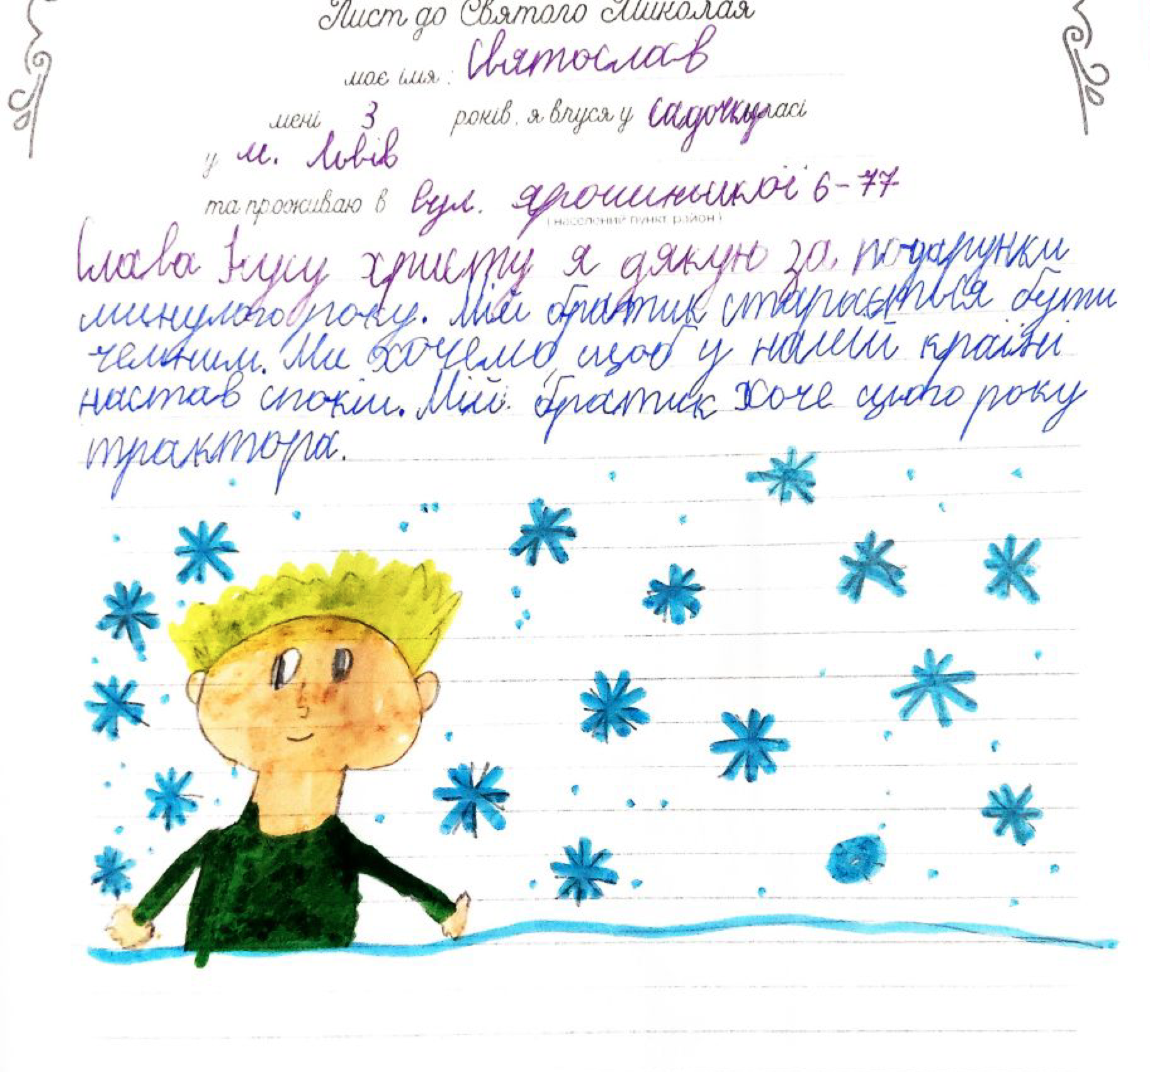 Лист до Святого Миколая
моє імя: Святослав
мені 3 років, я вчуся у садочку класі
у м. Львів
та проживаю в вул. Ярошинської 6-77
(населений пункт, район)
Слава Ісусу христу я дякую за подарунки
минулого року. Мій братик старається бути
чемним. Ми хочемо, щоб у нашій країні
настав спокій. Мій братик хоче цього року
трактора.